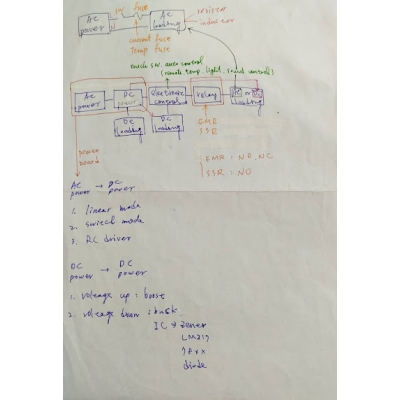 AC power
SW
fuse
N
AC loading
resistor
inductor
current fuse
Temp fuse
mech sw. auto control
(remote, temp, light, sound control)
AC power
DC power
electronic control
relay
AC or DC loading
DC loading
DC loading
EMR
SSR
power board
EMR : NO, NC
SSR : NO
AC power → DC power
1. linear mode
2. switch mode
3. RC driver
DC power → DC power
1. voltage up : boost
2. voltage down : busk
IC → zener
LM317
78xx
diode